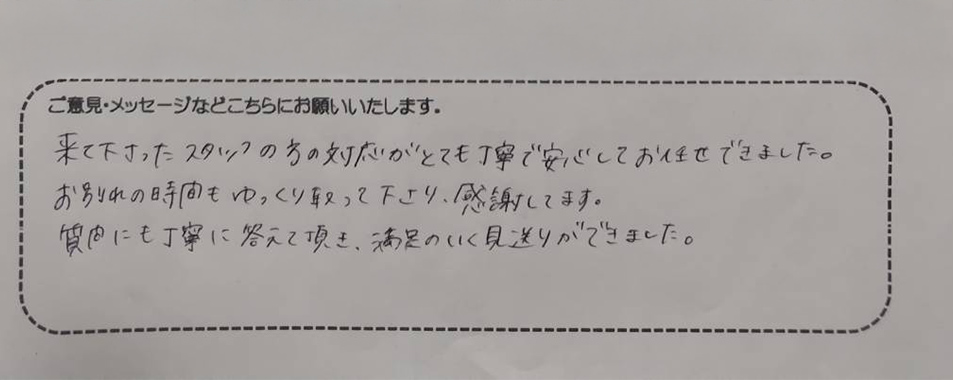 ご意見・メッセージなどこちらにお願いいたします。
来て下さったスタッフの方の対応がとても丁寧で安心してお任せできました。
お別れの時間もゆっくり取って下さり、感謝してます。
質問にも丁寧に答えて頂き、満足のいく見送りができました。